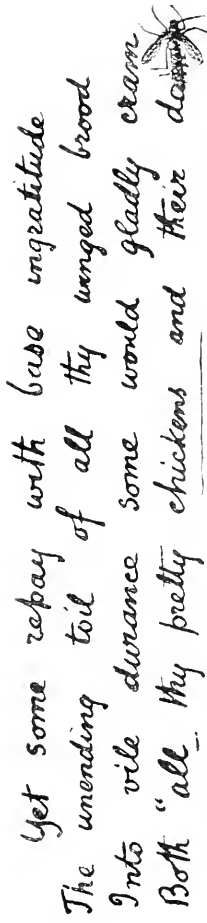 Yet some repay with base ingratitude
The unending toil of all thy winged brood
Into vile durance some would gladly cram
Both "all thy pretty chickens and their